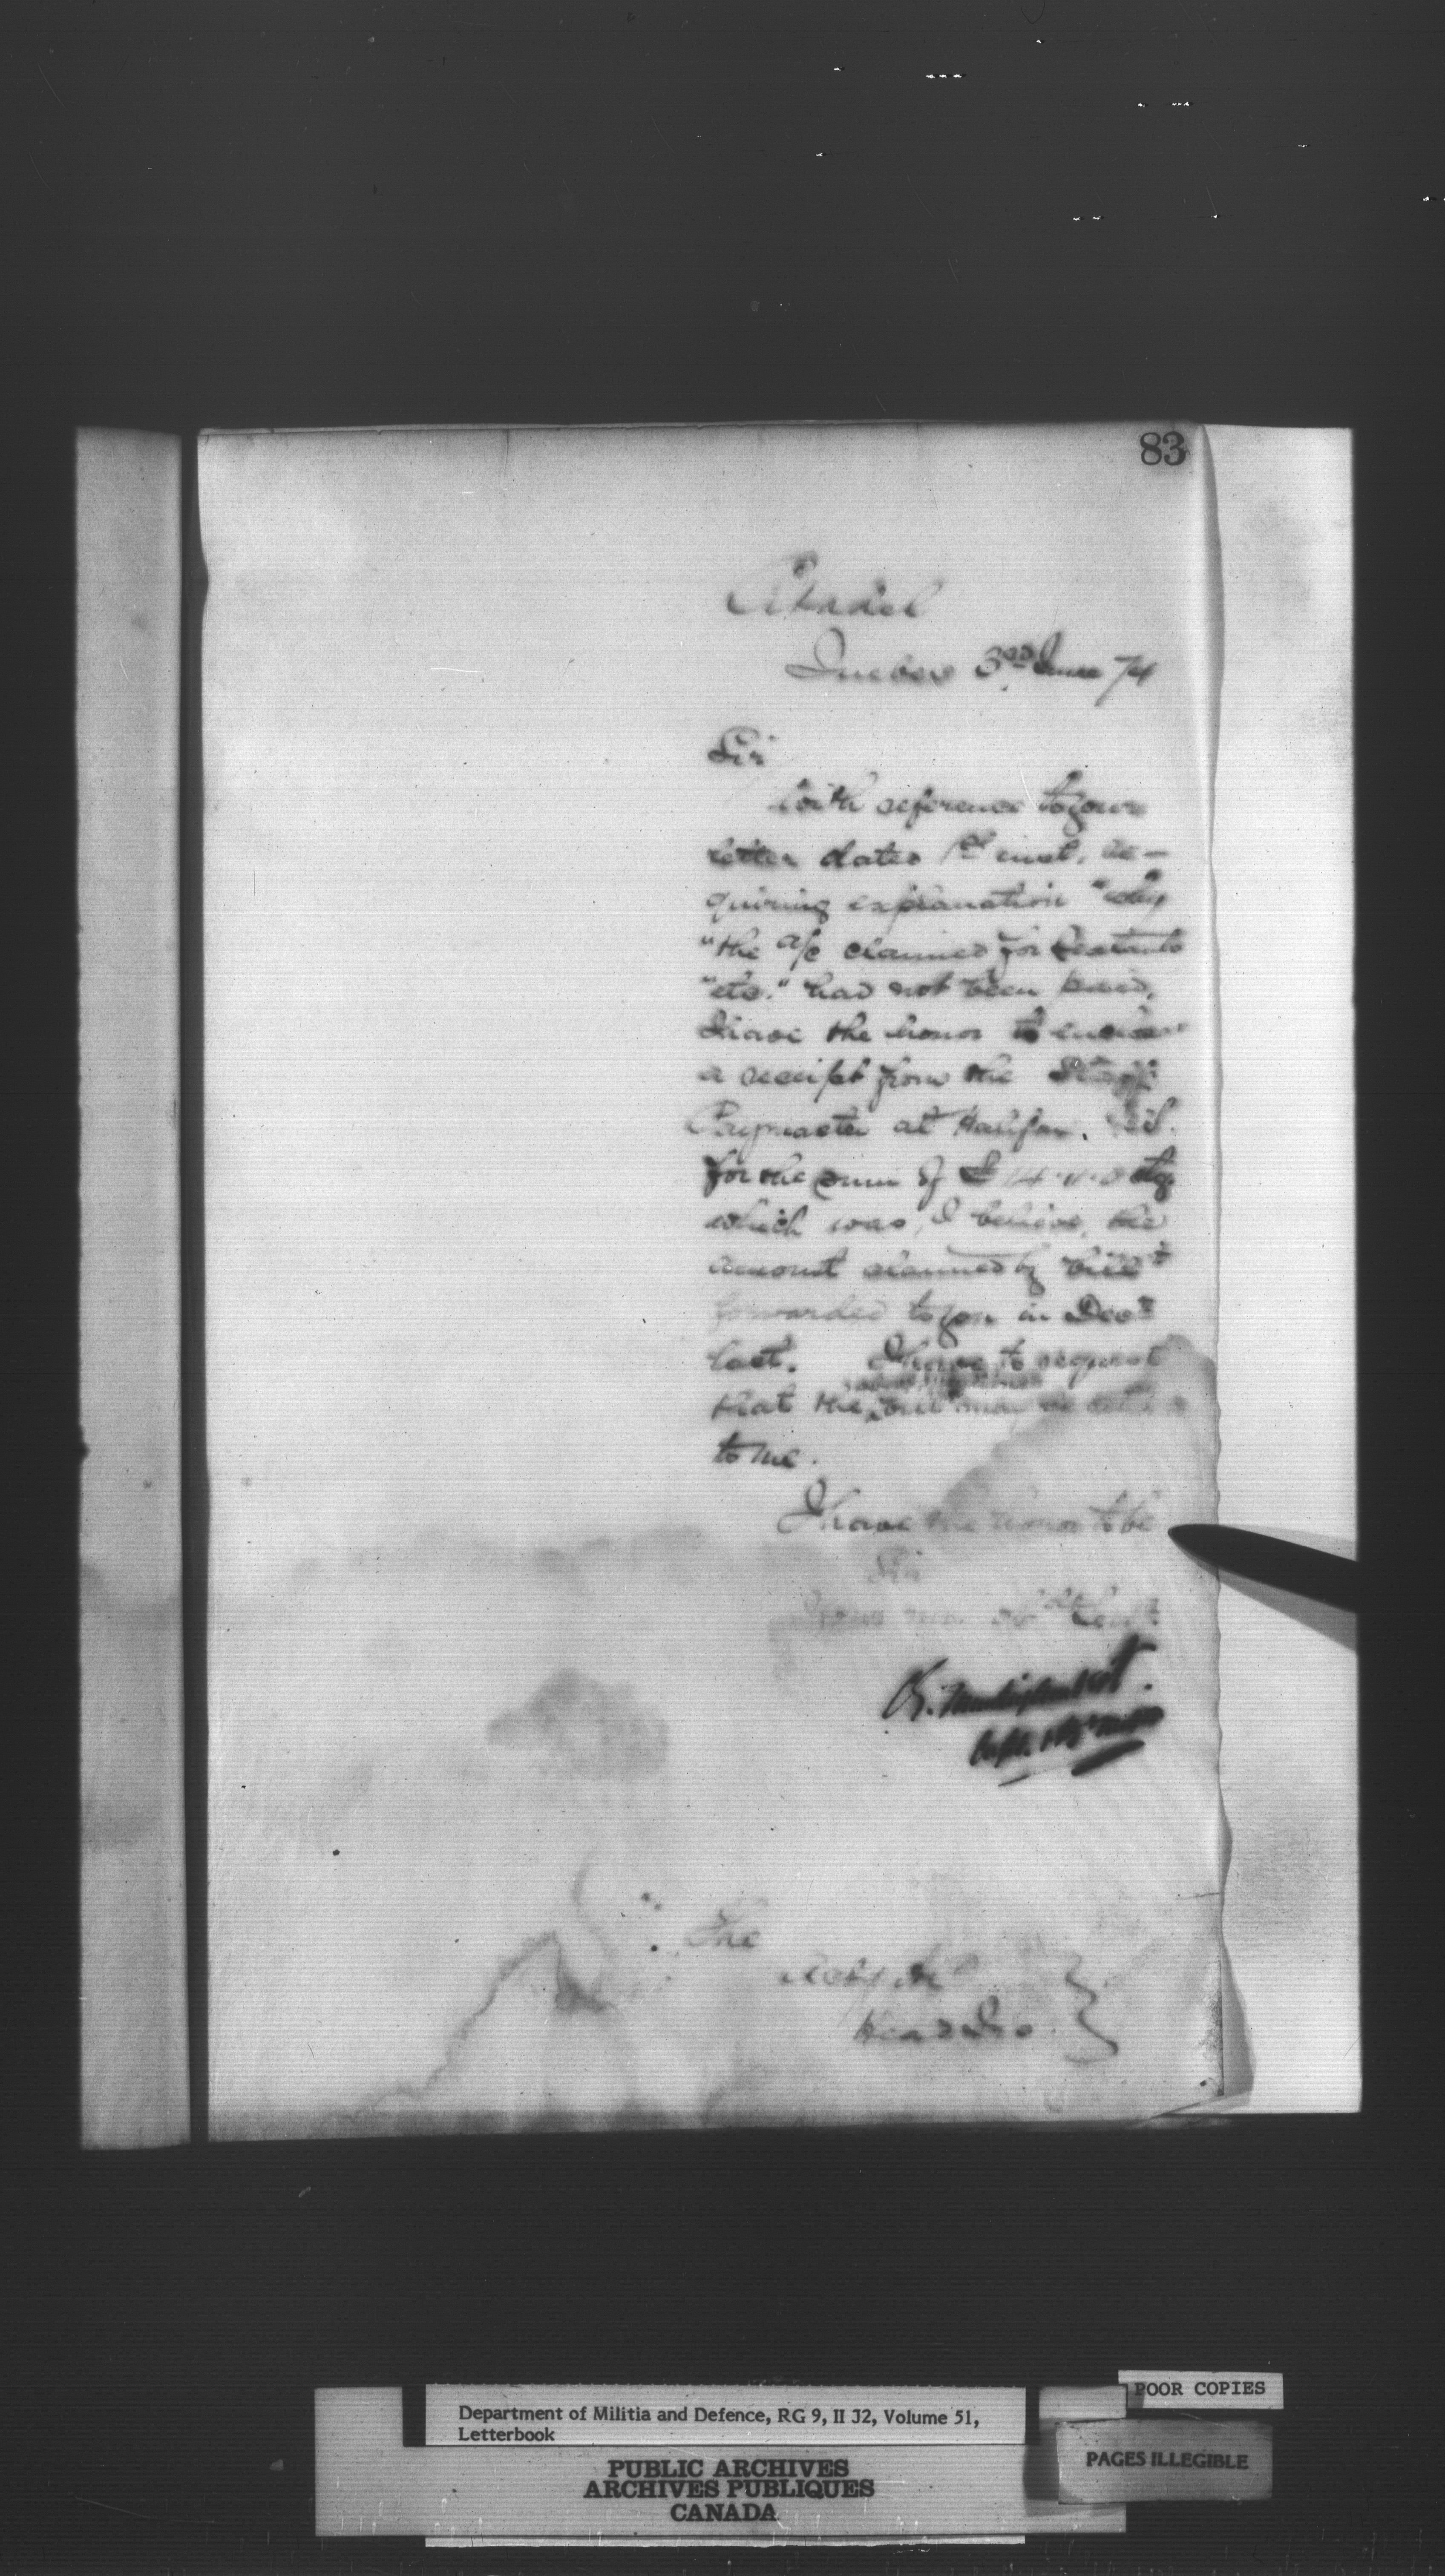 83
Citadel
Quebec 3rd June 74
Sir
With reference to your
letter dated 1st inst. re-
quiring explanation "why
"the a/c claimed for
"etc." had not been paid,
I have the honor to enclose
a receipt from the Staff
Paymaster at Halifax.
for the sum of £ 14 stg
which was, I believe, the
amount claimed by bill
forwarded to you in Decr
last. I have to request
that the bill may be
to me.
I have the honor to be
Sir
Your obdt Servt
The
Head Qrs
Department of Militia and Defence, RG 9, II J2, Volume 51,
Letterbook
POOR COPIES
PAGES ILLEGIBLE
PUBLIC ARCHIVES
ARCHIVES PUBLIQUES
CANADA